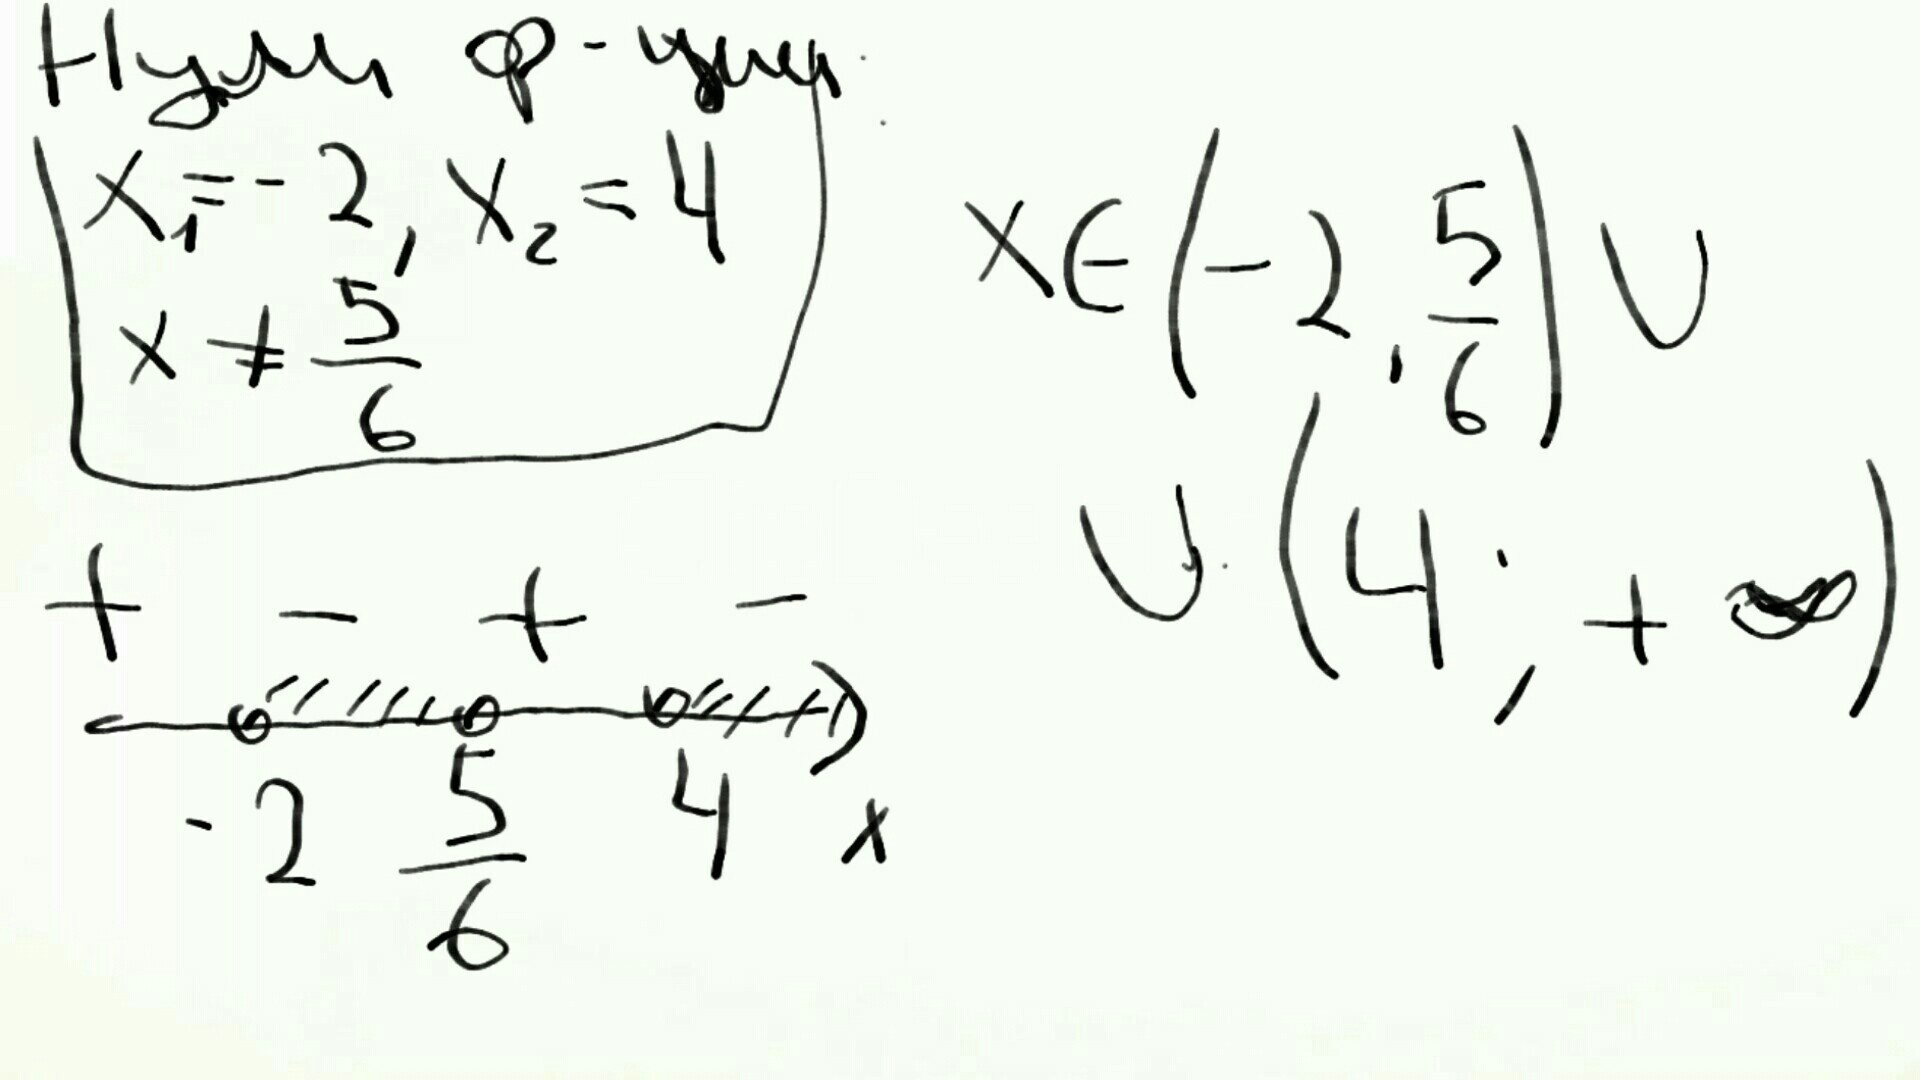 Нули ф-уии
x₁ = -2, x₂ = 4
x ≠ 5/6
x ∈ (-2, 5/6) ∪
∪ (4; +∞)
+ - + -
-2 5/6 4 x